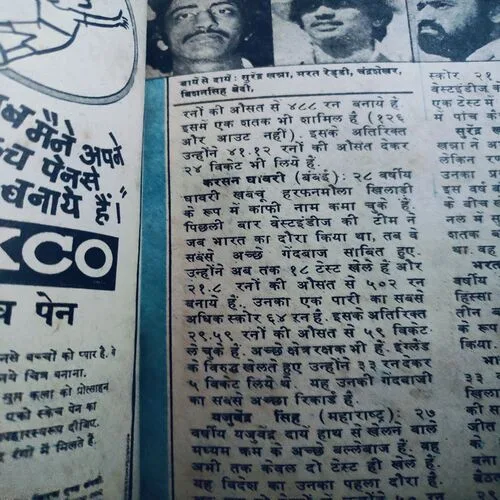 बायें से दायें : सुरेंद्र खन्ना, भरत रेड्डी, चंद्रशेखर,
बिशनसिंह बेदी,
रनों की औसत से ४८८ रन बनाये हैं.
इसमें एक शतक भी शामिल है (१२६
और आउट नहीं). इसके अतिरिक्त
उन्होंने ४१.१२ रनों की औसत देकर
२४ विकेट भी लिये हैं.
करसन घावरी (बंबई): २८ वर्षीय
घावरी खबचू हरफनमौला खिलाड़ी
के रूप में काफी नाम कमा चुके हैं.
पिछली बार वेस्टइंडीज की टीम ने
जब भारत का दौरा किया था, तब वे
सबसे अच्छे गेंदबाज साबित हुए.
उन्होंने अब तक १८ टेस्ट खेले हैं और
२१.८ रनों की औसत से ५०२ रन
बनाये हैं. उनका एक पारी का सबसे
अधिक स्कोर ६४ रन है. इसके अतिरिक्त
२९.५९ रनों की औसत से ५९ विकेट
ले चुके हैं. अच्छे क्षेत्ररक्षक भी हैं. इंग्लैंड
के विरुद्ध खेलते हुए उन्होंने ३३ रन देकर
५ विकेट लिये थे. यह उनकी गेंदबाजी
का सबसे अच्छा रिकार्ड है.
यजुवेंद्र सिंह (महाराष्ट्र): २७
वर्षीय यजुवेंद्र दायें हाथ से खेलने वाले
मध्यम क्रम के अच्छे बल्लेबाज हैं. वह
अभी तक केवल दो टेस्ट ही खेले हैं.
यह विदेश का उनका पहला दौरा है.
मैंने अपने
पेन से
बनाये हैं।"
KCO
पेन
बच्चों को प्यार है. वे
चित्र बनाना.
कला को प्रोत्साहन
एको स्केच पेन का
दीजिए.
रंगों में मिलते हैं.
स्कोर २१
वेस्टइंडीज के
एक टेस्ट में
में पांच की
सुरेंद्र
खन्ना ने
लेकिन
उनका
इस वर्ष
के बीच
शतक
था. वह
भरत
वर्षीय
हिस्सा
तीन
के रूप
किया.
खिलाड़ी
की
जीत
के
बना